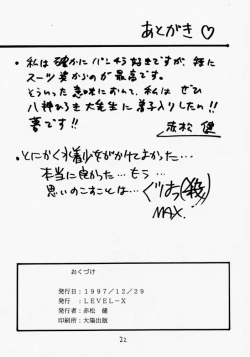 あとがき ♡
・私は確かにパンチラ好きですが、特に
スーツ姿からのが最高です。
とういった意味において、私はぜひ
八神ひろき大先生に弟子入りしたい!!
夢です!!
赤松 健
・とにかく水着少女がかけてよかった…
本当に良かった…もう…
思いのこすことは…ぐりお(殺)
MAX.
おくづけ
発行日:1997/12/29
発行 :LEVEL-X
発行者:赤松 健
印刷所:大陽出版
22